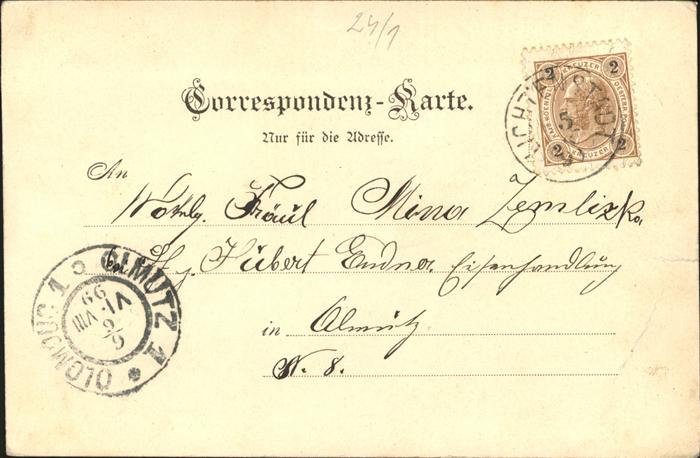 24/1
Correspondenz-Karte.
Nur für die Adresse.
An
Fräul Mina Zemlizka,
Hubert Endner, Eisenhandlung
in Olmütz
N. 8.
2 KREUZER 2
2 KREUZER 2
5
OLMÜTZ 1
OLOMOUC 1
6/9
VIII
99